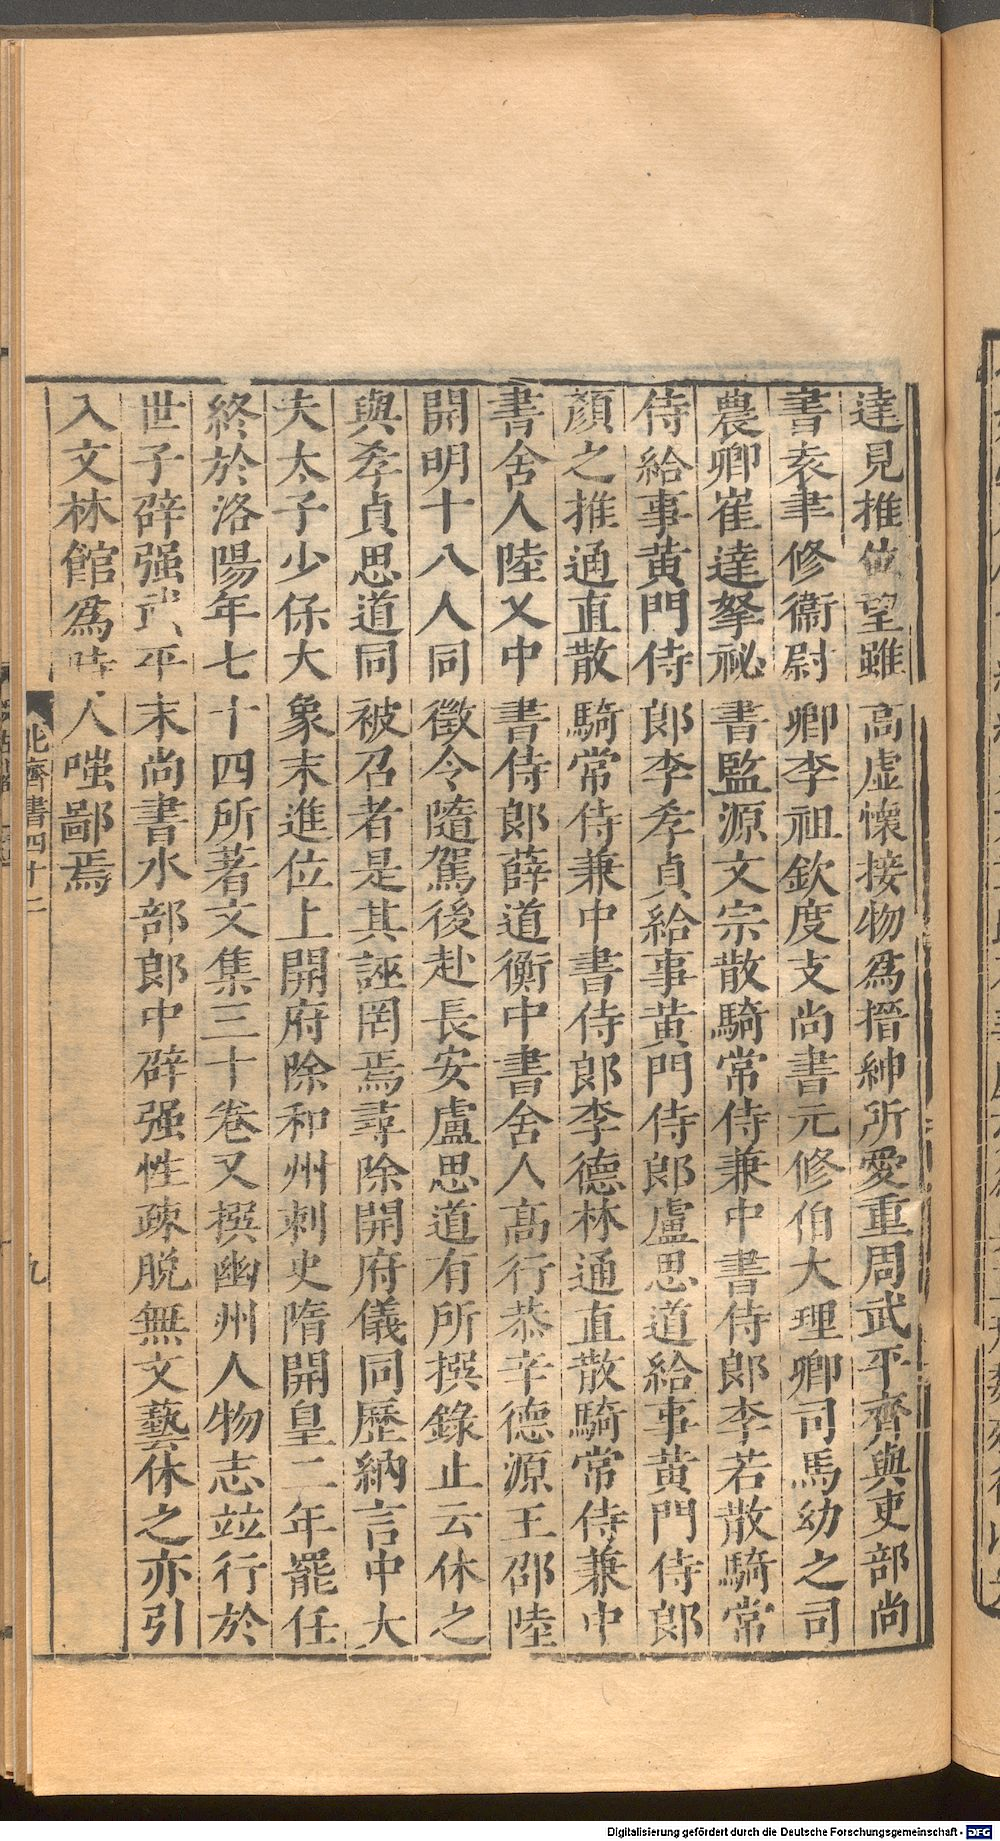 達見推位望雖高虛懷接物爲搢紳所愛重周武平齊與吏部尚
書袁聿修衞尉卿李祖欽度支尚書元修伯大理卿司馬幼之司
農卿崔達拏祕書監源文宗散騎常侍兼中書侍郎李若散騎常
侍給事黃門侍郎李孝貞給事黃門侍郎盧思道給事黃門侍郎
顏之推通直散騎常侍兼中書侍郎李德林通直散騎常侍兼中
書舍人陸乂中書侍郎薛道衡中書舍人高行恭辛德源王邵陸
開明十八人同徵令隨駕後赴長安盧思道有所撰錄止云休之
與孝貞思道同被召者是其誣罔焉尋除開府儀同歷納言中大
夫太子少保大象末進位上開府除和州刺史隋開皇二年罷任
終於洛陽年七十四所著文集三十卷又撰幽州人物志竝行於
世子辟强武平末尚書水部郎中辟强性疎脫無文藝休之亦引
入文林館爲時人嗤鄙焉
北齊書四十二
九
Digitalisierung gefördert durch die Deutsche Forschungsgemeinschaft - DFG